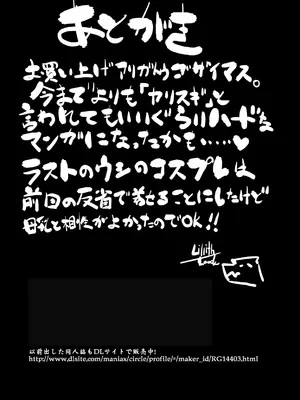 あとがき
お買い上げアリガトウゴザイマス。
今までよりも「ヤリスギ」と
言われてもいいくらいハードな
マンガになったかも・・・・・♥
ラストのウシのコスプレは
前回の反省で着せることにしたけど
母乳と相性がよかったのでOK!!
Lilith
以前出した同人誌もDLサイトで販売中!
http://www.dlsite.com/maniax/circle/profile/=/maker_id/RG14403.html